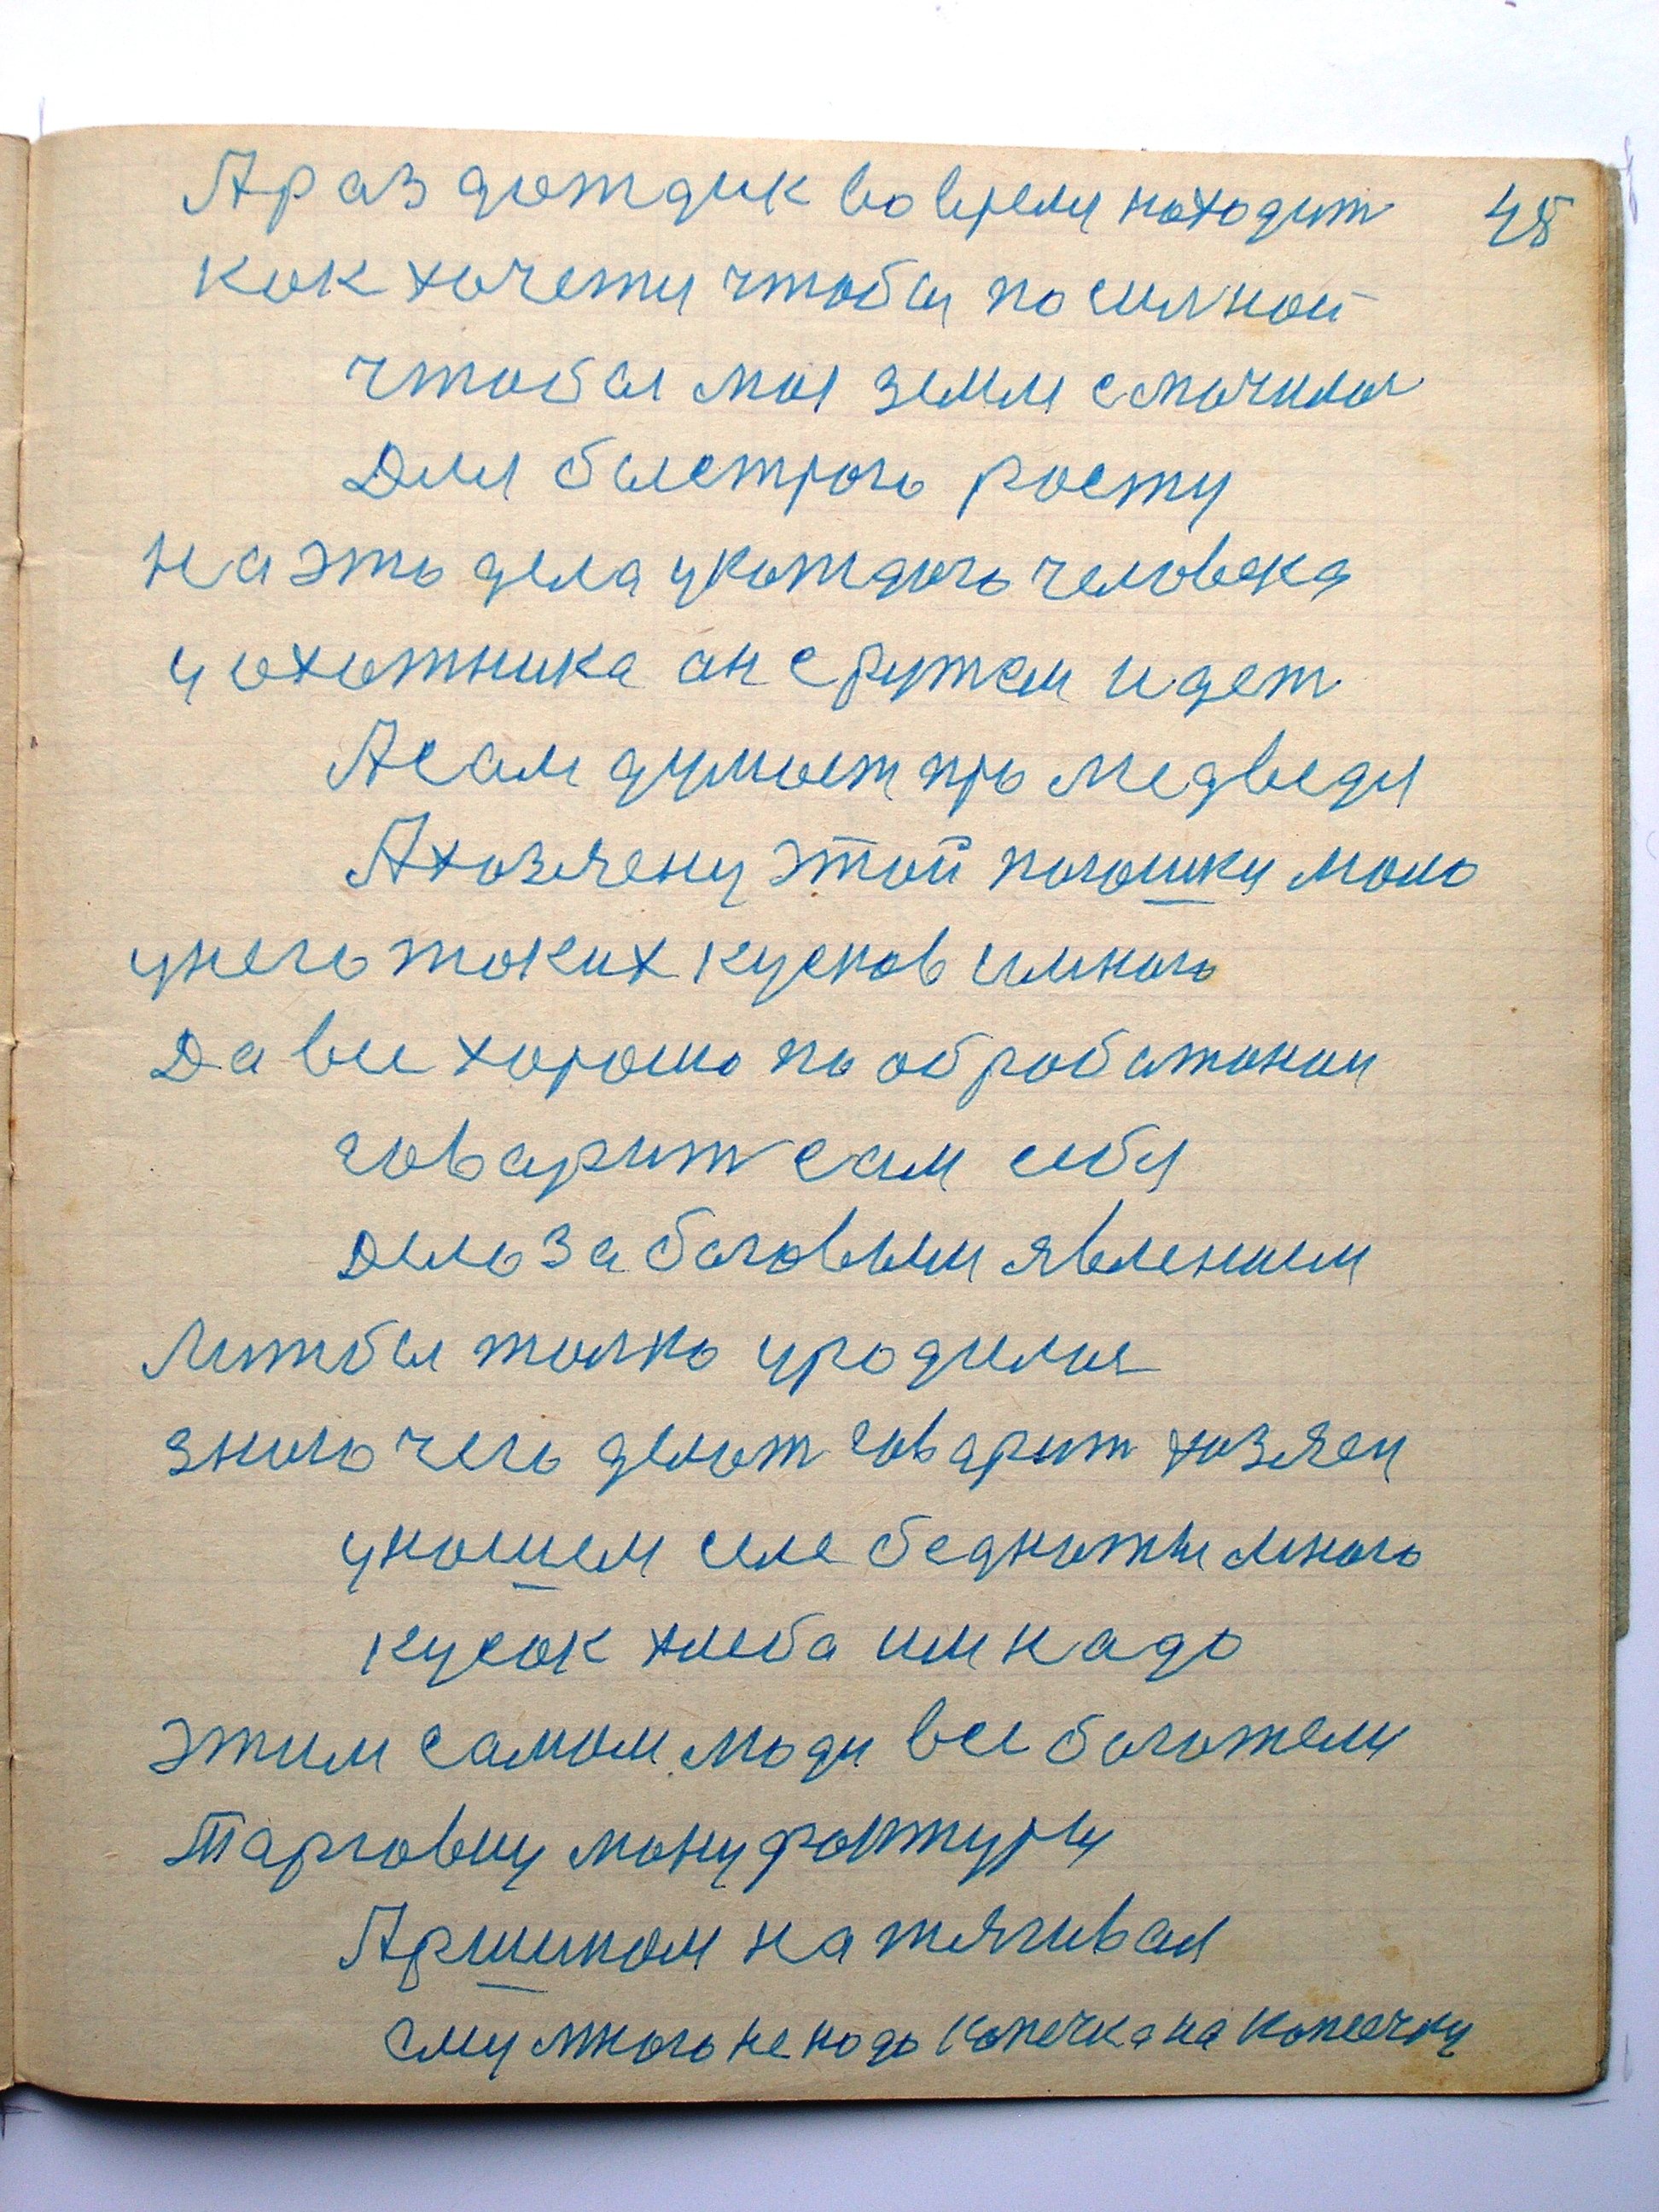 А раз дотдик во время находит 48
как хочети чтобы по силной
чтобы моя земля смачилая
Для быстрого росту
На это дела укотдого человека
у охотника он с рутем идет
А сам думает про медведя
А хозяену этой погошки мало
унего таких кусков имного
Да все хорошо по обработоном
говарит сам себя
Дело за боговым явлением
Литбы толко уродилоя
знаю чего делат говарит хозяен
унашем селе беднаты много
кусок хлеба им надо
этим самом люди все богатели
Тарговцы мануфактуры
Аршином натягивая
ему много не надо копечка на копеечку